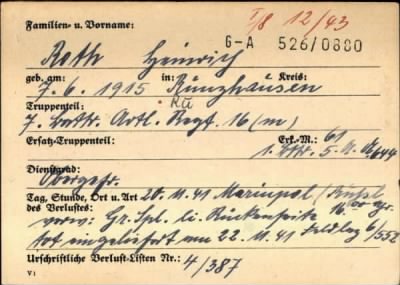 Familien- u. Vorname: I/8 12/43
G-A 526/0880
Roth Heinrich
geb. am: in: Kreis:
7.6.1915 Rünzhausen
Rü
Truppenteil:
7. Battr. Artl. Regt. 16 (m)
Ersatz-Truppenteil: Erk.-M.: 61
1. Bttr. 5. 644
Dienstgrad:
Obergefr.
Tag, Stunde, Ort u. Art 20.11.41 Mariupol
des Verlustes: verw: Gr. Spl. li. Rückenseite 16.00
tot eingeliefert am 22.11.41 Feldlaz 6/552
Urschriftliche Verlust-Listen Nr.: 4/387
V 1